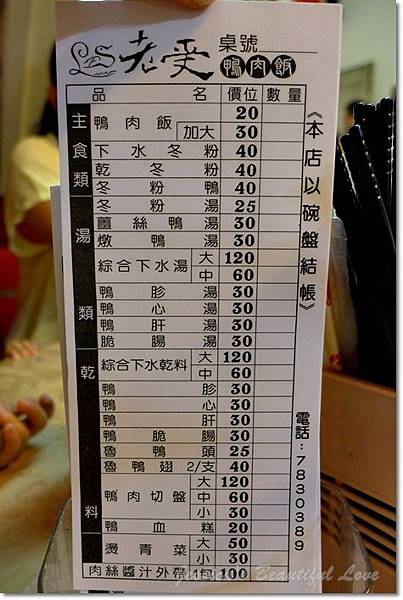 LS 老受 桌號
鴨肉飯
品名 價位 數量
主食類
鴨肉飯 20
加大 30
下水冬粉 40
乾冬粉 40
冬粉鴨 40
湯類
冬粉湯 25
薑絲鴨湯 30
燉鴨湯 30
綜合下水湯 大 120
中 60
鴨胗湯 30
鴨心湯 30
鴨肝湯 30
脆腸湯 30
乾料
綜合下水乾料 大 120
中 60
鴨胗 30
鴨心 30
鴨肝 30
鴨脆腸 30
魯鴨頭 25
魯鴨翅 2/支 40
鴨肉切盤 大 120
中 60
小 30
鴨血糕 20
燙青菜 大 50
小 30
肉絲醬汁外帶 1包 100
《本店以碗盤結帳》
電話:7830389
Beautiful Love